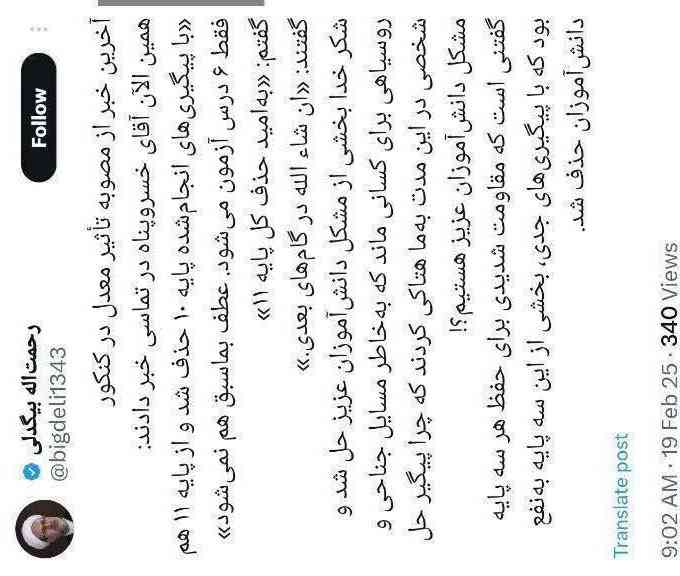 رحمت‌اله بیگدلی
@bigdeli1343
Follow
آخرین خبر از مصوبه تأثیر معدل در کنکور
همین الآن آقای خسروپناه در تماسی خبر دادند:
«با پیگیری‌های انجام‌شده پایه ۱۰ حذف شد و از پایه ۱۱ هم
فقط ۶ درس آزمون می‌شود. عطف بماسبق هم نمی‌شود»
گفتم: «به‌امید حذف کل پایه ۱۱»
گفتند: «ان شاء الله در گام‌های بعدی.»
شکر خدا بخشی از مشکل دانش‌آموزان عزیز حل شد و
روسیاهی برای کسانی ماند که به‌خاطر مسایل جناحی و
شخصی در این مدت به‌ما هتاکی کردند که چرا پیگیر حل
مشکل دانش‌آموزان عزیز هستیم؟!
گفتنی است که مقاومت شدیدی برای حفظ هر سه پایه
بود که با پیگیری‌های جدی، بخشی از این سه پایه به‌نفع
دانش‌آموزان حذف شد.
Translate post
9:02 AM · 19 Feb 25 · 340 Views